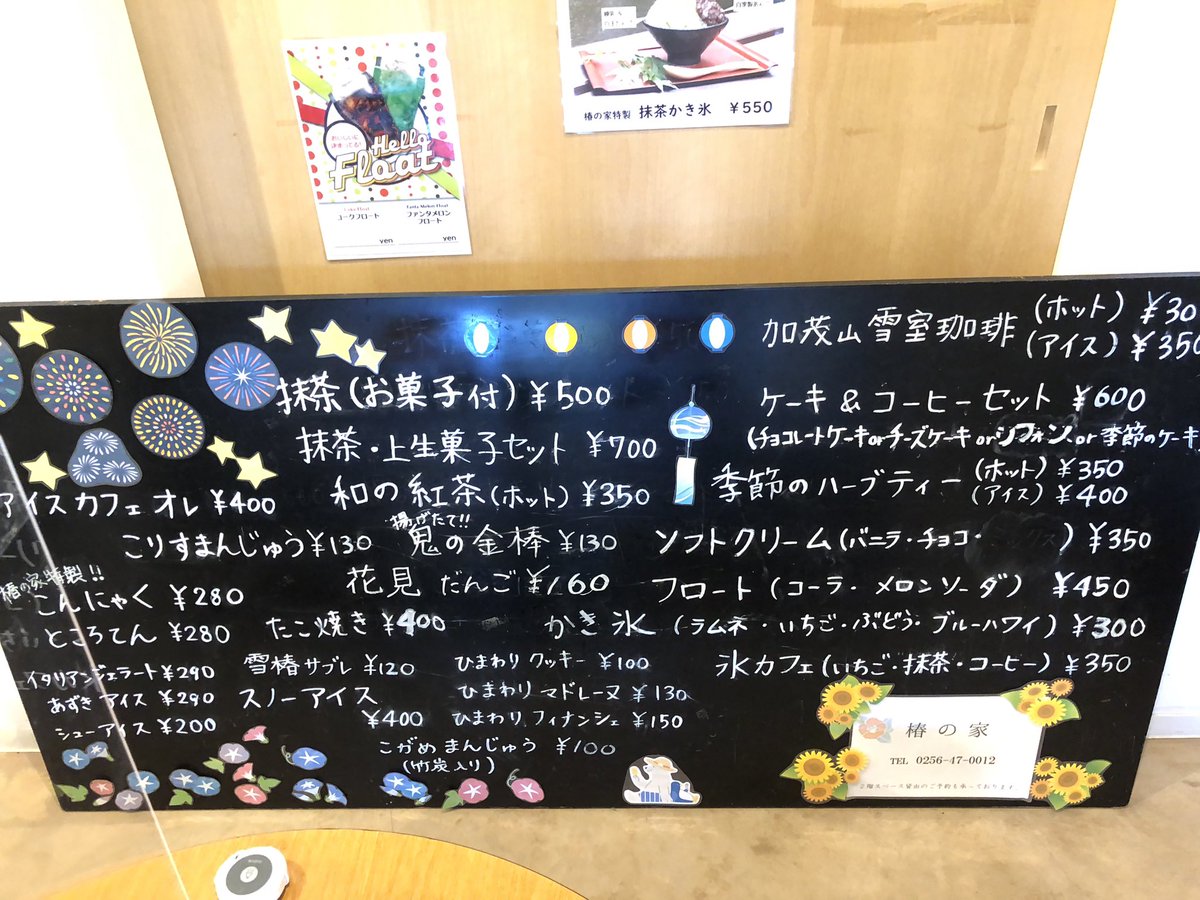 椿の家特製 抹茶かき氷 ¥550
Hello
Float
コークフロート
ファンタメロン
フロート
yen
yen
加茂山雪室珈琲 (ホット) ¥30
(アイス) ¥350
抹茶(お菓子付) ¥500
ケーキ&コーヒーセット ¥600
抹茶・上生菓子セット ¥700
(チョコレートケーキorチーズケーキorシフォンor季節のケーキ
和の紅茶(ホット) ¥350
季節のハーブティー (ホット) ¥350
(アイス) ¥400
アイスカフェオレ ¥400
こりすまんじゅう ¥130
揚げたて!!
鬼の金棒 ¥130
ソフトクリーム(バニラ・チョコ・ ) ¥350
花見だんご ¥160
フロート(コーラ・メロンソーダ) ¥450
椿の家特製!!
こんにゃく ¥280
ところてん ¥280
たこ焼き ¥400
かき氷 (ラムネ・いちご・ぶどう・ブルーハワイ) ¥300
イタリアンジェラート ¥290
雪椿サブレ ¥120
ひまわりクッキー ¥100
氷カフェ(いちご・抹茶・コーヒー) ¥350
あずきアイス ¥290
スノーアイス
¥400
ひまわりマドレーヌ ¥130
シューアイス ¥200
ひまわりフィナンシェ ¥150
こがめまんじゅう ¥100
(竹炭入り)
椿の家
TEL 0256-47-0012
2階スペース貸出のご予約も承っております